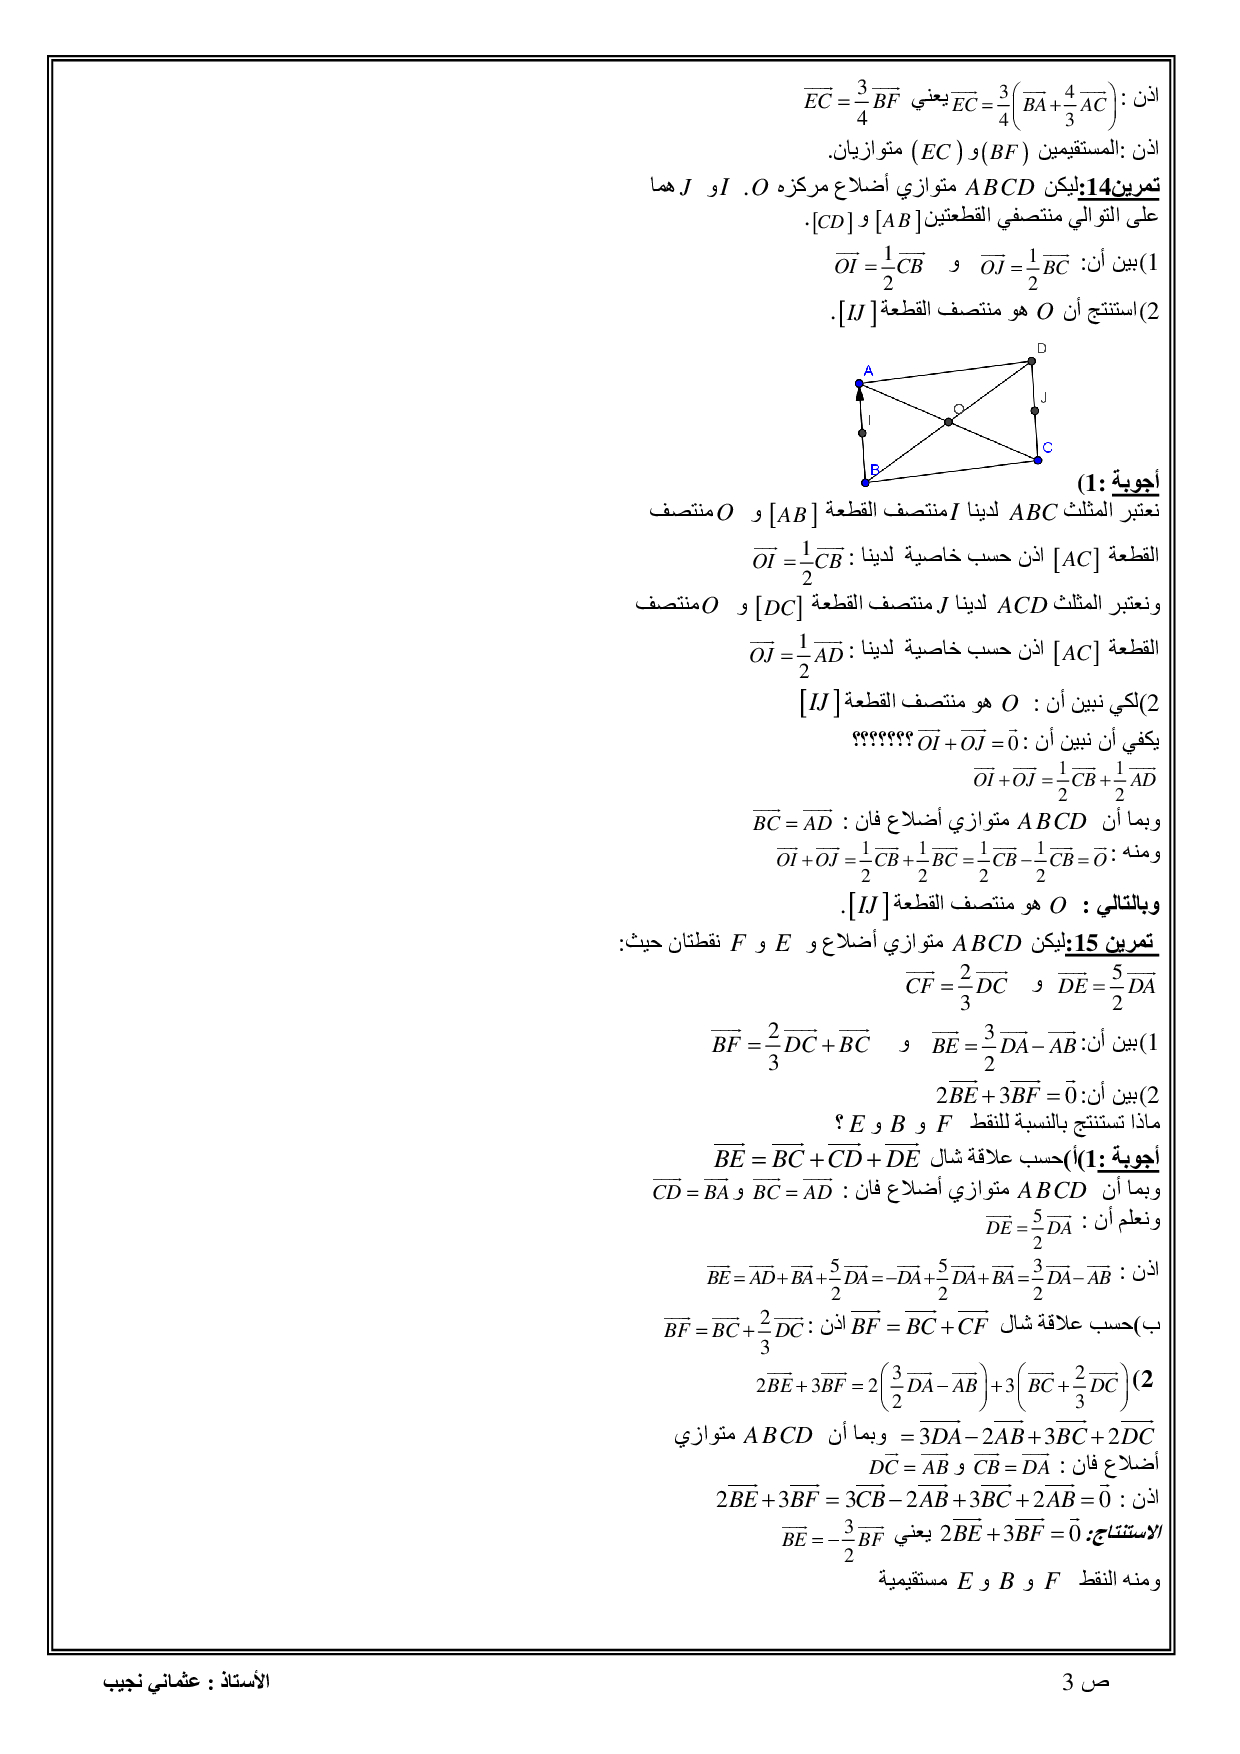 اذن : $\overrightarrow{EC}=\frac{3}{4}\left(\overrightarrow{BA}+\frac{4}{3}\overrightarrow{AC}\right)$ يعني $\overrightarrow{EC}=\frac{3}{4}\overrightarrow{BF}$
اذن :المستقيمين $(BF)$ و $(EC)$ متوازيان.
تمرين14:ليكن $ABCD$ متوازي أضلاع مركزه $O$. $I$ و $J$ هما
على التوالي منتصفي القطعتين $[AB]$ و $[CD]$.
1)بين أن: $\overrightarrow{OJ}=\frac{1}{2}\overrightarrow{BC}$ و $\overrightarrow{OI}=\frac{1}{2}\overrightarrow{CB}$
2)استنتج أن $O$ هو منتصف القطعة $[IJ]$.
D
A
J
O
I
C
B
أجوبة :1)
نعتبر المثلث $ABC$ لدينا $I$ منتصف القطعة $[AB]$ و $O$ منتصف
القطعة $[AC]$ اذن حسب خاصية لدينا : $\overrightarrow{OI}=\frac{1}{2}\overrightarrow{CB}$
ونعتبر المثلث $ACD$ لدينا $J$ منتصف القطعة $[DC]$ و $O$ منتصف
القطعة $[AC]$ اذن حسب خاصية لدينا : $\overrightarrow{OJ}=\frac{1}{2}\overrightarrow{AD}$
2)لكي نبين أن : $O$ هو منتصف القطعة $[IJ]$
يكفي أن نبين أن : $\overrightarrow{OI}+\overrightarrow{OJ}=\vec{0}$ ؟؟؟؟؟؟؟
$\overrightarrow{OI}+\overrightarrow{OJ}=\frac{1}{2}\overrightarrow{CB}+\frac{1}{2}\overrightarrow{AD}$
وبما أن $ABCD$ متوازي أضلاع فان : $\overrightarrow{BC}=\overrightarrow{AD}$
ومنه : $\overrightarrow{OI}+\overrightarrow{OJ}=\frac{1}{2}\overrightarrow{CB}+\frac{1}{2}\overrightarrow{BC}=\frac{1}{2}\overrightarrow{CB}-\frac{1}{2}\overrightarrow{CB}=\vec{O}$
وبالتالي : $O$ هو منتصف القطعة $[IJ]$.
تمرين 15:ليكن $ABCD$ متوازي أضلاع و $E$ و $F$ نقطتان حيث:
$\overrightarrow{DE}=\frac{5}{2}\overrightarrow{DA}$ و $\overrightarrow{CF}=\frac{2}{3}\overrightarrow{DC}$
1)بين أن: $\overrightarrow{BE}=\frac{3}{2}\overrightarrow{DA}-\overrightarrow{AB}$ و $\overrightarrow{BF}=\frac{2}{3}\overrightarrow{DC}+\overrightarrow{BC}$
2)بين أن: $2\overrightarrow{BE}+3\overrightarrow{BF}=\vec{0}$
ماذا تستنتج بالنسبة للنقط $F$ و $B$ و $E$ ؟
أجوبة :1)أ)حسب علاقة شال $\overrightarrow{BE}=\overrightarrow{BC}+\overrightarrow{CD}+\overrightarrow{DE}$
وبما أن $ABCD$ متوازي أضلاع فان : $\overrightarrow{BC}=\overrightarrow{AD}$ و $\overrightarrow{CD}=\overrightarrow{BA}$
ونعلم أن : $\overrightarrow{DE}=\frac{5}{2}\overrightarrow{DA}$
اذن : $\overrightarrow{BE}=\overrightarrow{AD}+\overrightarrow{BA}+\frac{5}{2}\overrightarrow{DA}=-\overrightarrow{DA}+\frac{5}{2}\overrightarrow{DA}+\overrightarrow{BA}=\frac{3}{2}\overrightarrow{DA}-\overrightarrow{AB}$
ب)حسب علاقة شال $\overrightarrow{BF}=\overrightarrow{BC}+\overrightarrow{CF}$ اذن : $\overrightarrow{BF}=\overrightarrow{BC}+\frac{2}{3}\overrightarrow{DC}$
2) $2\overrightarrow{BE}+3\overrightarrow{BF}=2\left(\frac{3}{2}\overrightarrow{DA}-\overrightarrow{AB}\right)+3\left(\overrightarrow{BC}+\frac{2}{3}\overrightarrow{DC}\right)$
$=3\overrightarrow{DA}-2\overrightarrow{AB}+3\overrightarrow{BC}+2\overrightarrow{DC}$ وبما أن $ABCD$ متوازي
أضلاع فان : $\overrightarrow{CB}=\overrightarrow{DA}$ و $\overrightarrow{DC}=\overrightarrow{AB}$
اذن : $2\overrightarrow{BE}+3\overrightarrow{BF}=3\overrightarrow{CB}-2\overrightarrow{AB}+3\overrightarrow{BC}+2\overrightarrow{AB}=\vec{0}$
الاستنتاج: $2\overrightarrow{BE}+3\overrightarrow{BF}=\vec{0}$ يعني $\overrightarrow{BE}=-\frac{3}{2}\overrightarrow{BF}$
ومنه النقط $F$ و $B$ و $E$ مستقيمية
ص 3
الأستاذ : عثماني نجيب